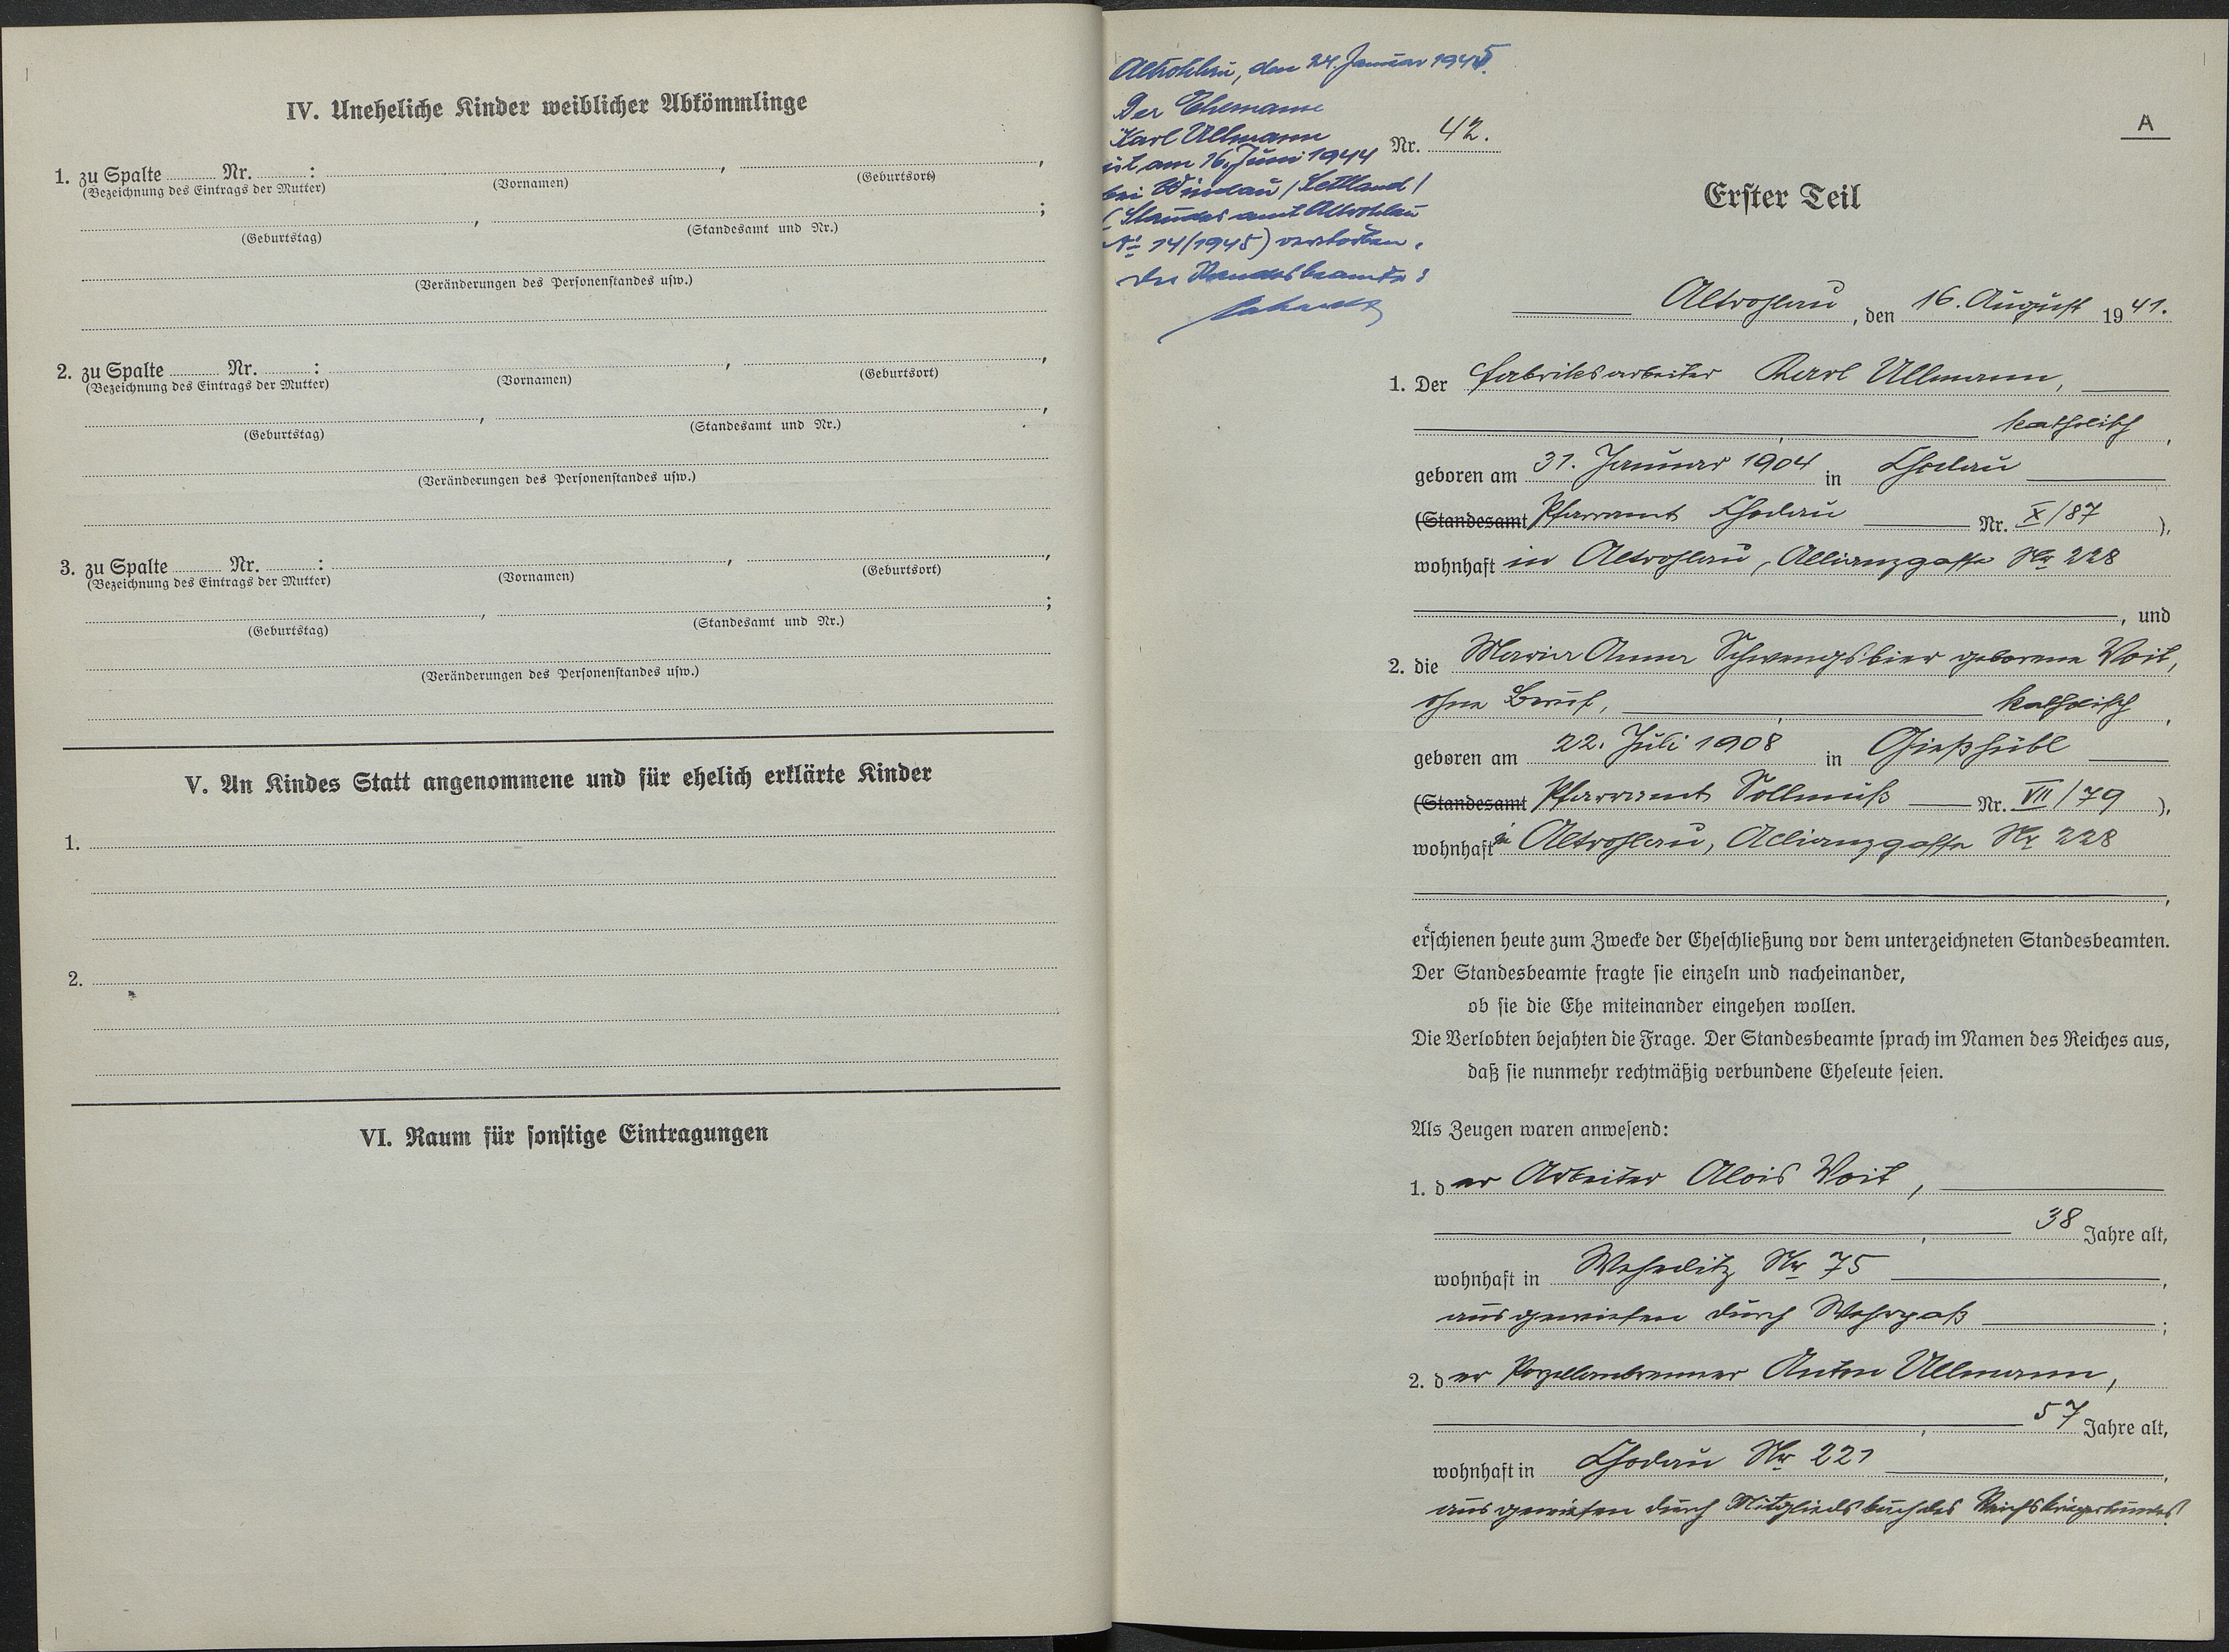 IV. Uneheliche Kinder weiblicher Abkömmlinge
1. zu Spalte ........ Nr. ........ : ........, ........,
(Bezeichnung des Eintrags der Mutter) (Vornamen) (Geburtsort)
........, ........;
(Geburtstag) (Standesamt und Nr.)
(Veränderungen des Personenstandes usw.)
2. zu Spalte ........ Nr. ........ : ........, ........,
(Bezeichnung des Eintrags der Mutter) (Vornamen) (Geburtsort)
........, ........,
(Geburtstag) (Standesamt und Nr.)
(Veränderungen des Personenstandes usw.)
3. zu Spalte ........ Nr. ........ : ........, ........,
(Bezeichnung des Eintrags der Mutter) (Vornamen) (Geburtsort)
........, ........;
(Geburtstag) (Standesamt und Nr.)
(Veränderungen des Personenstandes usw.)
V. An Kindes Statt angenommene und für ehelich erklärte Kinder
1.
2.
VI. Raum für sonstige Eintragungen
Altrohlau, den 24. Januar 1945.
Der Ehemann
Karl Ullmann
ist am 16. Juni 1944
bei Windau / Lettland /
(Standesamt Altrohlau
No 14/1945) verstorben.
Der Standesbeamte:
A
Nr. 42.
Erster Teil
Altrohlau, den 16. August 1941.
1. Der Fabriksarbeiter Karl Ullmann,
katholisch,
geboren am 31. Januar 1904 in Chodau
(Standesamt Pfarramt Chodau Nr. X/87),
wohnhaft in Altrohlau, Allianzgasse Nr 228
, und
2. die Maria Anna Schwengsbier geborene Voit,
ohne Beruf, katholisch,
geboren am 22. Juli 1908 in Gießhübl
(Standesamt Pfarramt Sollmuß Nr. VII/79),
wohnhaft in Altrohlau, Allianzgasse Nr 228
,
erschienen heute zum Zwecke der Eheschließung vor dem unterzeichneten Standesbeamten.
Der Standesbeamte fragte sie einzeln und nacheinander,
ob sie die Ehe miteinander eingehen wollen.
Die Verlobten bejahten die Frage. Der Standesbeamte sprach im Namen des Reiches aus,
daß sie nunmehr rechtmäßig verbundene Eheleute seien.
Als Zeugen waren anwesend:
1. der Arbeiter Alois Voit,
, 38 Jahre alt,
wohnhaft in Weheditz Nr 75,
ausgewiesen durch Wehrpaß;
2. der Porzellanbrenner Anton Ullmann,
, 57 Jahre alt,
wohnhaft in Chodau Nr 221,
ausgewiesen durch Mitgliedsbuch des Reichskriegerbundes